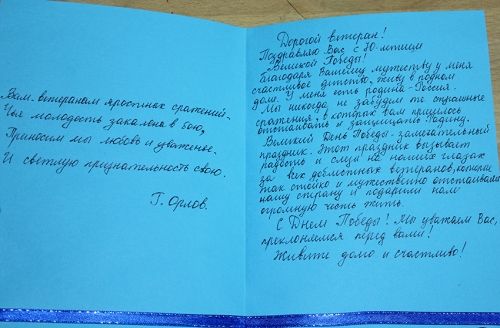 Вам, ветеранам яростных сражений,
Чья молодость закалена в бою,
Приносим мы любовь и уважение.
И светлую признательность свою.
Г. Орлов.
Дорогой ветеран!
Поздравляю Вас с 70-летием
Великой Победы!
Благодаря Вашему мужеству у меня
счастливое детство, живу в родном
доме. У меня есть родина-Россия.
Мы никогда не забудем те страшные
сражения, в которых вам пришлось
отстаивать и защищать Родину.
Великий День Победы-замечательный
праздник. Этот праздник вызывает
радость и слёзы на наших глазах
за вас доблестных ветеранов, которые
так стойко и мужественно отстаивали
нашу страну и подарили нам
огромную честь жить.
С Днём Победы! Мы уважаем Вас,
преклоняемся перед вами!
Живите долго и счастливо!